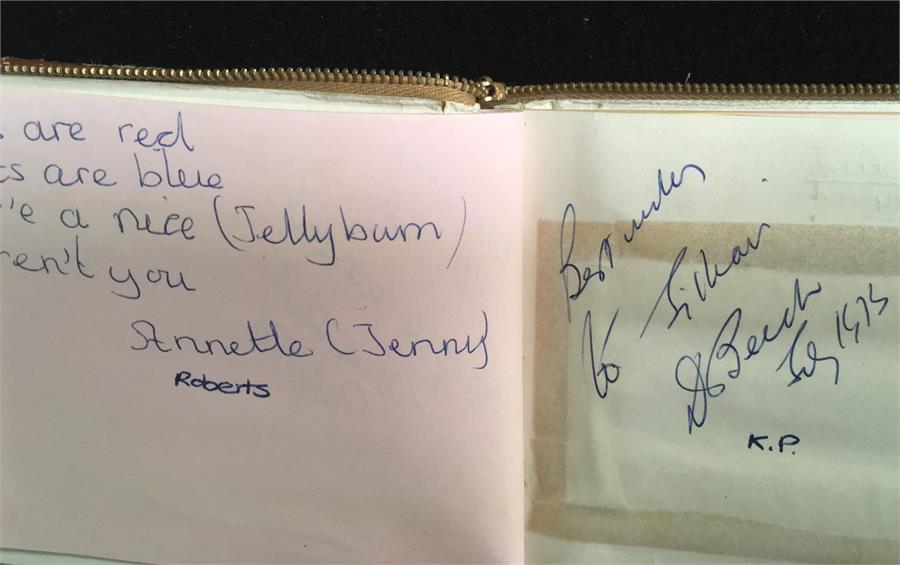 are red
are blue
a nice (Jellybum)
ren't you
Annette (Jenny)
Roberts
Best wishes
to Gillian
Beech
July 1973
K.P.